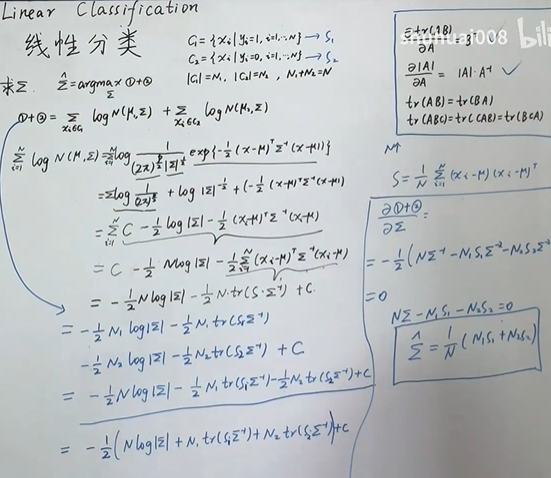 Linear Classification
线性分类
C₁ = {xᵢ | yᵢ=1, i=1,…,N} → S₁
C₂ = {xᵢ | yᵢ=0, i=1,…,N} → S₂
|C₁| = N₁, |C₂| = N₂, N₁+N₂=N
求Σ. Σ̂ = argmax_Σ ①+②
①+② = Σ_{xᵢ∈C₁} log N(μ₁,Σ) + Σ_{xᵢ∈C₂} log N(μ₂,Σ)
Σ_{i=1}^N log N(μ,Σ) = Σ_{i=1}^N log 1/((2π)^{p/2}|Σ|^{1/2}) exp{-1/2 (x-μ)ᵀΣ⁻¹(x-μ)}
= Σ log 1/(2π)^{p/2} + log|Σ|^{-1/2} + (-1/2 (x-μ)ᵀΣ⁻¹(x-μ))
= Σ_{i=1}^N C - 1/2 log|Σ| - 1/2 (xᵢ-μ)ᵀΣ⁻¹(xᵢ-μ)
= C - 1/2 N log|Σ| - 1/2 Σ_{i=1}^N (xᵢ-μ)ᵀΣ⁻¹(xᵢ-μ)
= -1/2 N log|Σ| - 1/2 N·tr(S·Σ⁻¹) + C.
= -1/2 N₁ log|Σ| - 1/2 N₁ tr(S₁Σ⁻¹)
-1/2 N₂ log|Σ| - 1/2 N₂ tr(S₂Σ⁻¹) + C
= -1/2 N log|Σ| - 1/2 N₁ tr(S₁Σ⁻¹) - 1/2 N₂ tr(S₂Σ⁻¹) + C
= -1/2 (N log|Σ| + N₁ tr(S₁Σ⁻¹) + N₂ tr(S₂Σ⁻¹)) + C
∂tr(AB)/∂A = B
∂|A|/∂A = |A|·A⁻¹ ✓
tr(AB) = tr(BA)
tr(ABC) = tr(CAB) = tr(BCA)
shuhuai008 bili
S = 1/N Σ_{i=1}^N (xᵢ-μ)(xᵢ-μ)ᵀ
∂①+②/∂Σ =
= -1/2 (NΣ⁻¹ - N₁S₁Σ⁻² - N₂S₂Σ⁻²
= 0
NΣ - N₁S₁ - N₂S₂ = 0
Σ̂ = 1/N (N₁S₁ + N₂S₂)